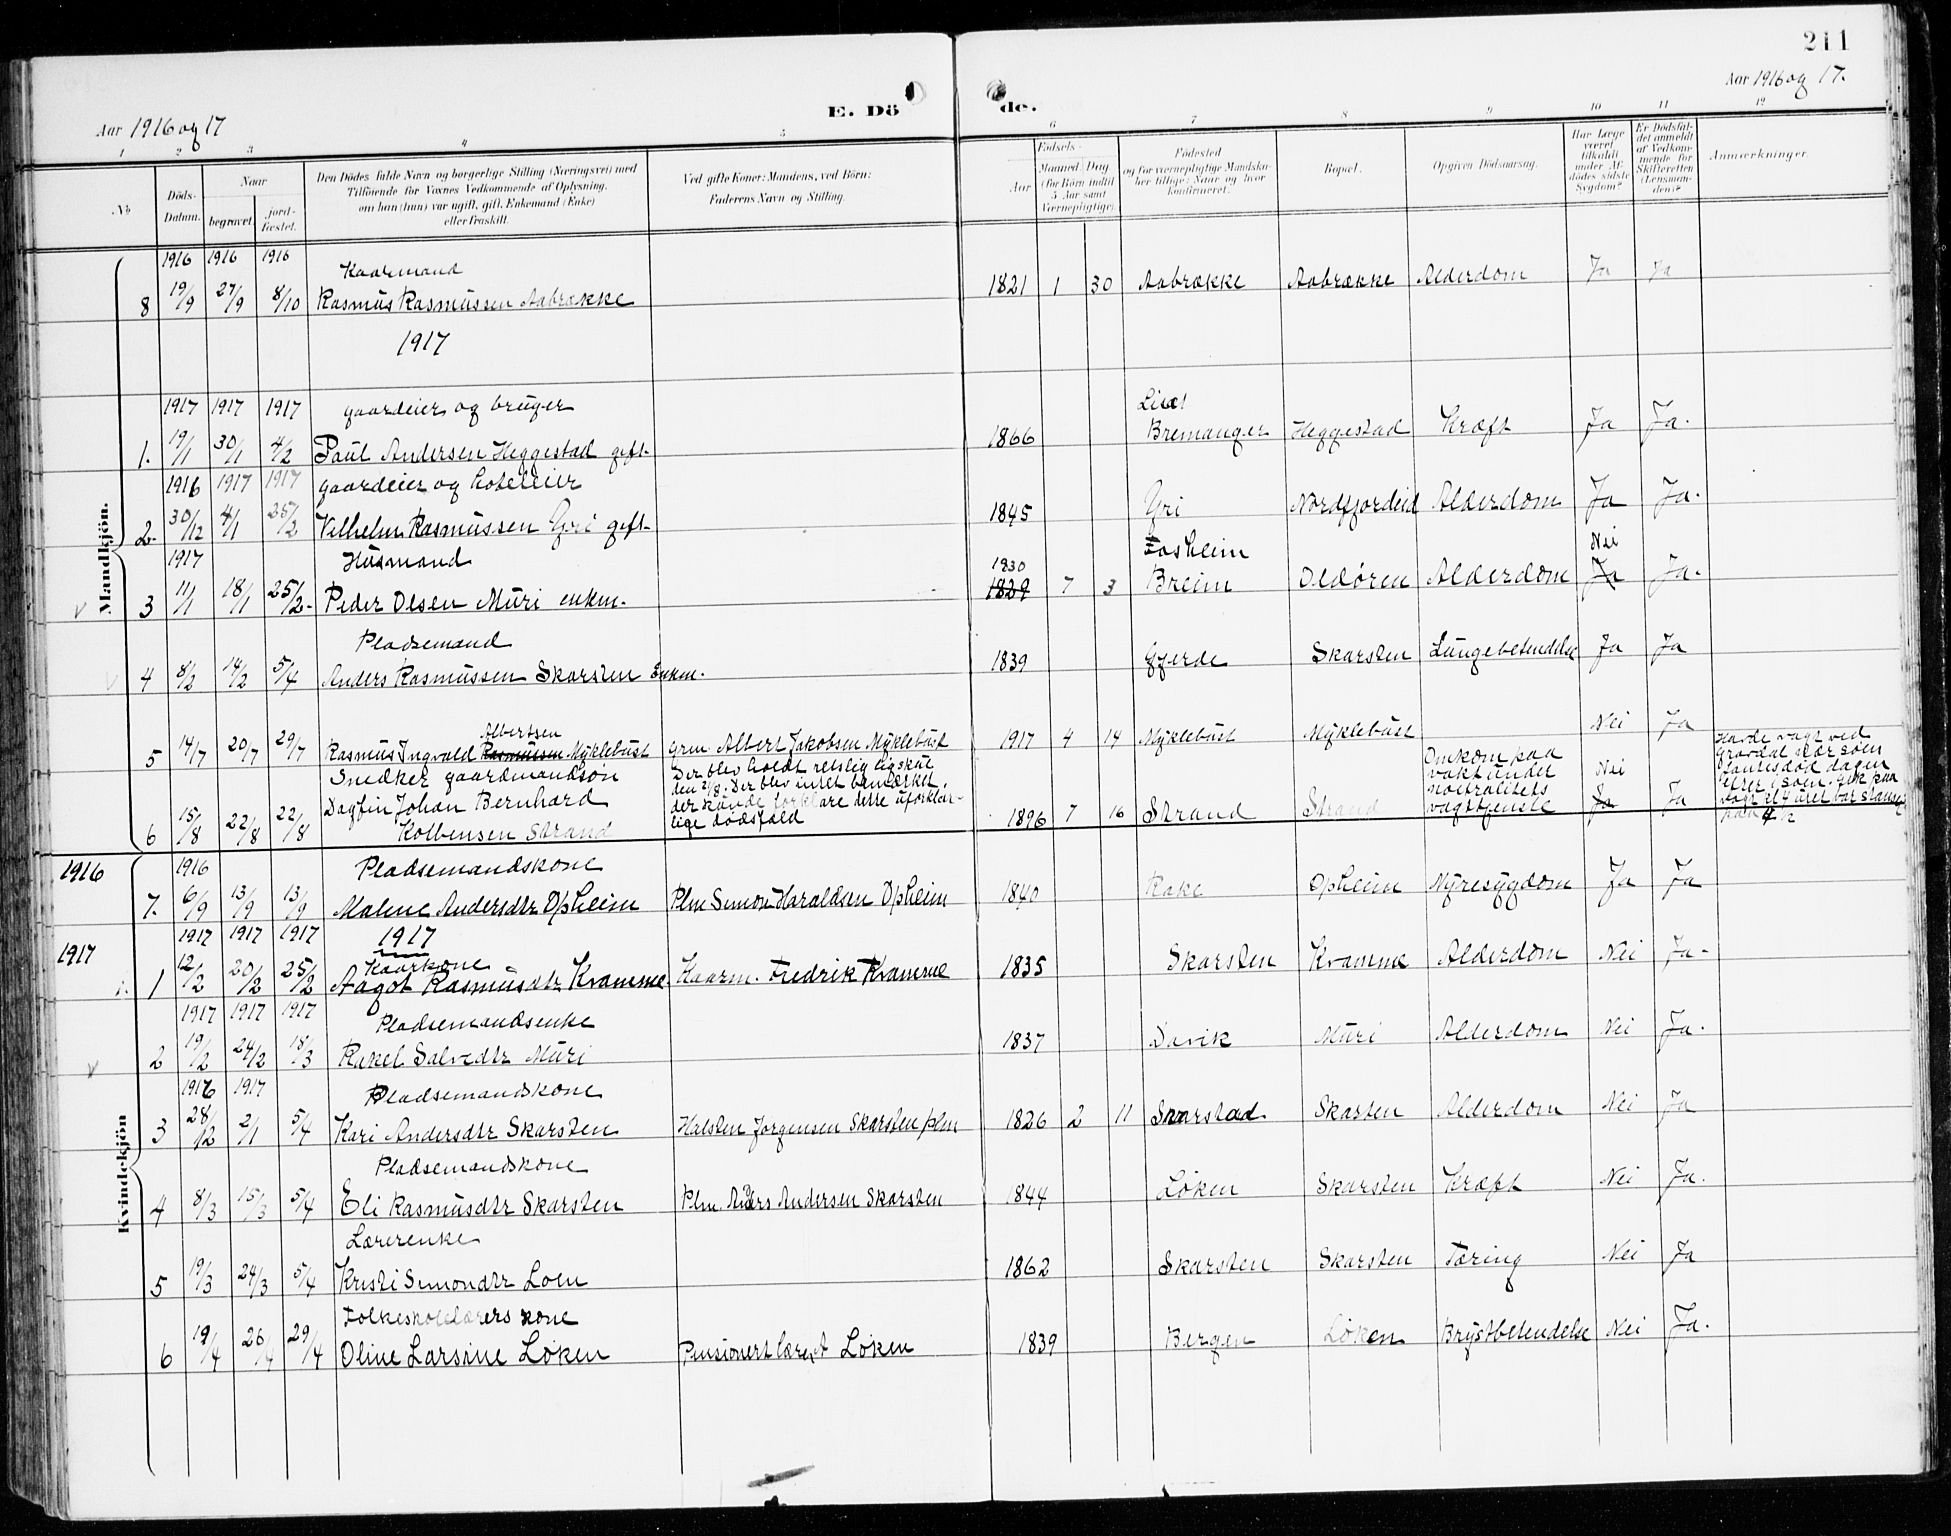 211
Aar 1916 og 17
E. Dö de.
Aar 1916 og 17.
1 2 3 4 5 6 7 8 9 10 11 12
No
Döds-Datum.
Naar
begravet
jord-fæstet.
Den Dödes fulde Navn og borgerlige Stilling (Næringsvei) med
Tilföiende for Voxnes Vedkommende af Oplysning,
om han (hun) var ugift, gift, Enkemand (Enke)
eller fraskilt.
Ved gifte Koner: Mandens, ved Börn:
Faderens Navn og Stilling.
Födsels-
Aar
Maaned Dag
(for Börn indtil
5 Aar samt
Værnepligtige).
Födested
og for værnepligtige Mandska-
ber tillige: Naar og hvor
konfirmeret.
Bopæl.
Opgiven Dödsaarsag.
Har Læge
været
tilkaldt
under Af-
dödes sidste
Sygdom?
Er Dödsfal-
det anmeldt
af Vedkom-
mende for
Skifteretten
(Lensman-
den)?
Anmærkninger.
Mandkjön.
1916 1916 1916 Kaarmand
8 19/9 27/9 8/10 Rasmus Rasmussen Aabrække 1821 1 30 Aabrække Aabrække Alderdom Ja Ja
1917
1917 1917 1917 gaardeier og bruger
1. 19/1 30/1 4/2 Paul Andersen Heggestad gift. 1866 Bremanger Heggestad Kræft Ja Ja.
1916 1917 1917 gaardeier og hoteleier
2. 30/12 4/1 25/2 Vilhelm Rasmussen Gri gift. 1845 Gri Nordfjordeid Alderdom Ja Ja.
1917 Husmand 1830 Fosheim Nei
3 11/1 18/1 25/2. Peder Olsen Muri enkm. 1829 7 3 Breim Oldøren Alderdom Ja Ja.
Pladsemand
4 8/2 14/2 5/4 Anders Rasmussen Skarsten Enkm. 1839 Gjerde Skarsten Lungebetendelse Ja Ja
Albertsen
5 14/7 20/7 29/7 Rasmus Ingvald Rasmussen Myklebust grm. Albert Jakobsen Myklebust 1917 4 14 Myklebust Myklebust Nei Ja
Snedker gaardmandsøn
Dagfin Johan Bernhard
6 15/8 22/8 22/8 Kolbensen Strand
Der blev holdt retslig ligskue
den 21/8. Der blev intet bemærket,
der kunde forklare dette uforklar-
lige dødsfald
1896 7 16 Strand Strand
Omkom paa
vakt under
nøitralitets
vagttjeneste
Nei
Ja Ja
Havde vagt ved
1916
Kvindekjön
1916 Pladsemandskone
7. 6/9 13/9 13/9 Malene Andersdtr Opheim Plm Simon Haraldsen Opheim 1840 Rake Opheim Nyresygdom Ja Ja
1917
1917 1917 1917 1917
Kaarkone
1 12/2 20/2 25/2 Aagot Rasmusdtr Kramme. Kaarm. Fredrik Kramme 1835 Skarsten Kramme Alderdom Nei Ja.
1917 1917 1917 Pladsemandsenke
2 19/2 24/2 18/3 Rakel Salvedtr Muri 1837 Davik Muri Alderdom Nei Ja.
1916 1917 Pladsemandskone
3 28/12 2/1 5/4 Kari Andersdtr Skarsten Halsten Jørgensen Skarsten plm 1826 2 11 Skarstad Skarsten Alderdom Nei Ja
Pladsemandskone
4 8/3 15/3 5/4 Eli Rasmusdtr Skarsten Plm. Anders Andersen Skarsten 1844 Løken Skarsten Kræft Nei Ja.
Lærerenke
5 19/3 24/3 5/4 Kristi Simondtr Loen 1862 Skarsten Skarsten Tæring Nei Ja
Folkeskolelærers kone
6 19/4 26/4 29/4 Oline Larsine Løken Pensionert lærer A Løken 1839 Bergen Løken Brystbetendelse Nei Ja.